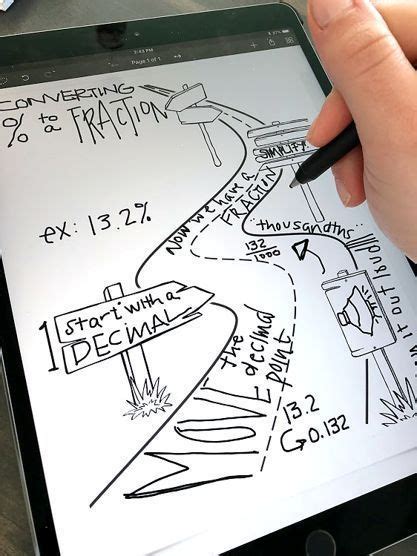 7:43 PM
37%
Page 1 of 1
CONVERTING
% to a FRACTION
ex: 13.2%
1 start with a
DECIMAL
MOVE the
decimal
point
13.2
0.132
"thousandths"
132
1000
Now we have a
FRACTION
SIMPLIFY
it out loud